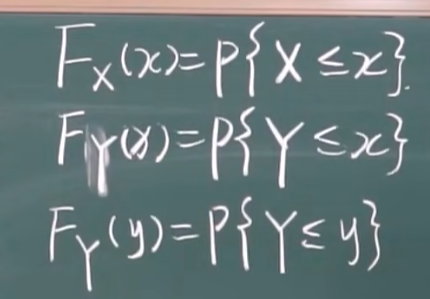 F_X(x)=P{X≤x}.
F_Y(x)=P{Y≤x}
F_Y(y)=P{Y≤y}